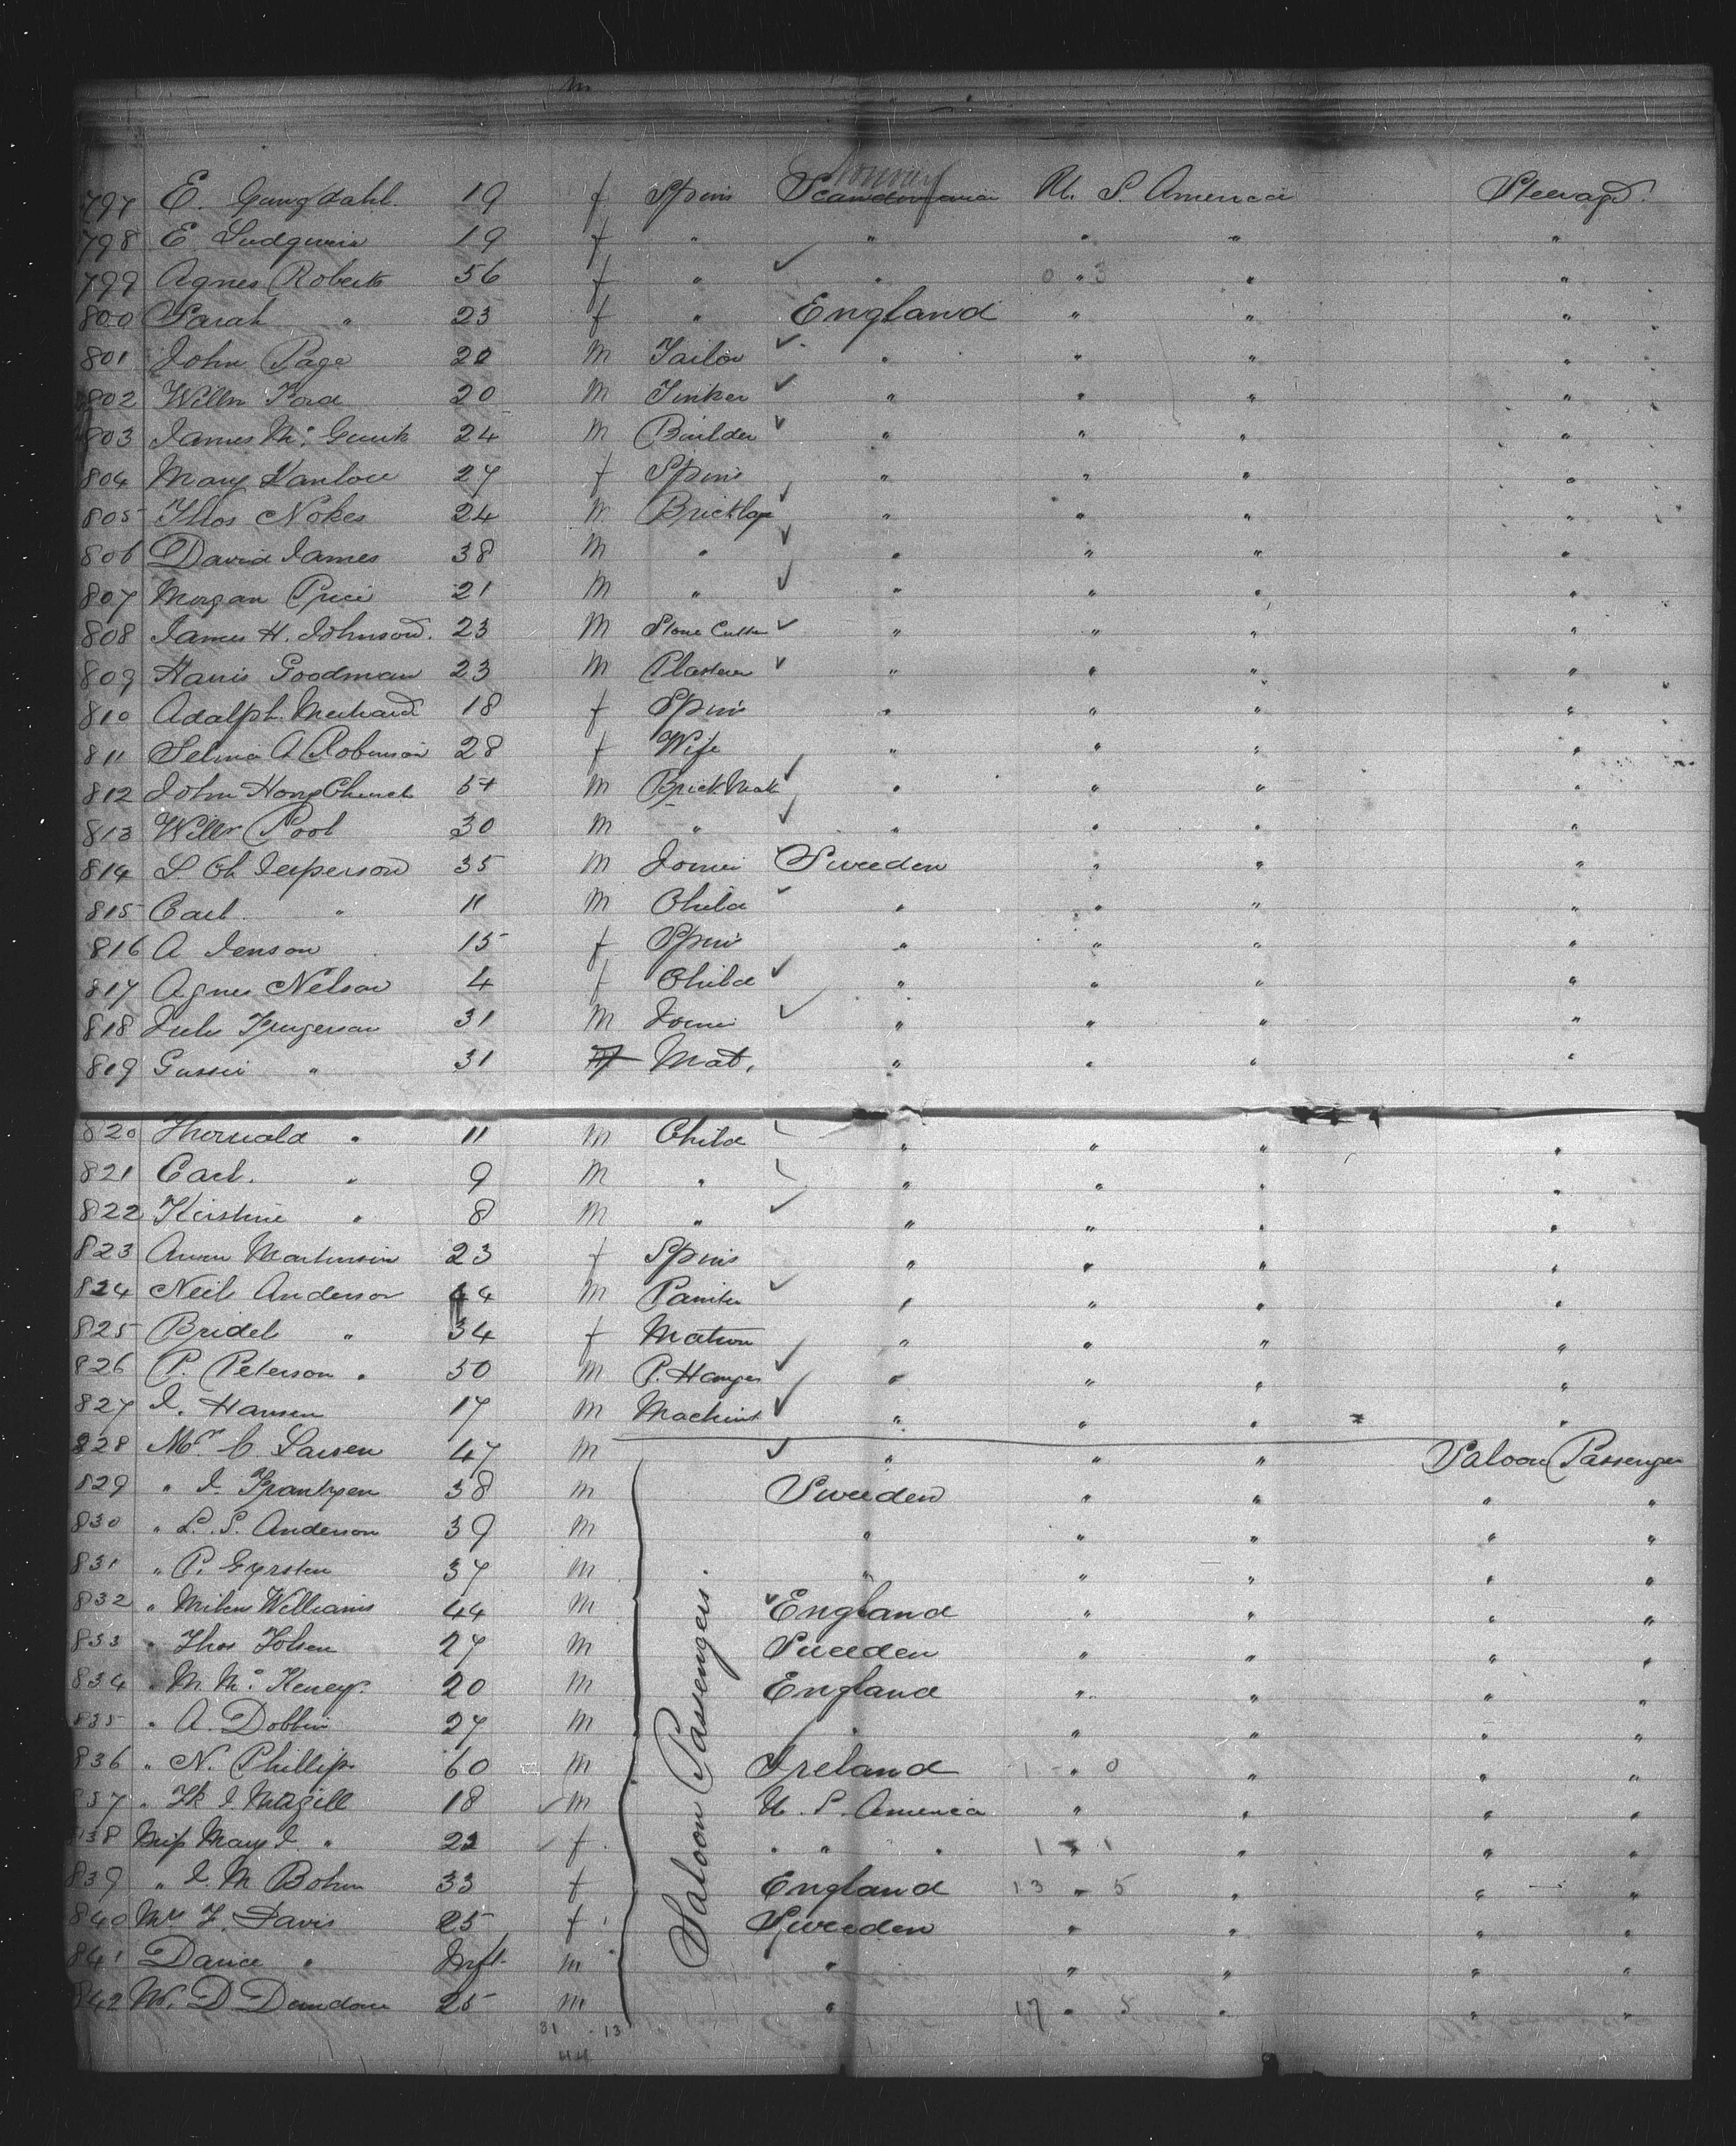 m
Norway
797 E. Gungdahl. 19 f Spins Scandinavia U. S. America Steerage.
798 E Ludguin 19 f " " " " "
799 Agnes Roberts 56 f " " " " "
800 Sarah " 23 f " England " " "
801 John Page 20 M Tailor " " " "
802 Willm Ford 20 M Tinker " " " "
803 James Mc Gurk 24 M Builder " " " "
804 Mary Hanlow 27 f Spins " " " "
805 Thos Nokes 24 M Bricklayr " " " "
806 David James 38 M " " " " "
807 Morgan Price 21 M " " " " "
808 James H. Johnson. 23 M Stone Cutter " " " "
809 Harris Goodman 23 M Plasterer " " " "
810 Adalph. 18 f Spins " " " "
811 Selma A Robinson 28 f Wife " " " "
812 John Hong Church 54 M Brick Mak " " " "
813 Willm Pool 30 M " " " " "
814 L Ch Jesperson 35 M Joiner Sweeden " " "
815 Carl " 11 M Child " " " "
816 A Jenson 15 f Spins " " " "
817 Agnes Nelson 4 f Child " " " "
818 Juls 31 M Joiner " " " "
819 Gussie " 31 f Mat. " " " "
820 Thorwald " 11 M Child " " " "
821 Carl. " 9 M " " " " "
822 Kirstine " 8 M " " " " "
823 Anna Martinsin 23 f Spins " " " "
824 Neils Anderson 44 M Painter " " " "
825 Bridel " 34 f Matron " " " "
826 P. Peterson " 30 M P. Hanger " " " "
827 J. Hansen 17 M Machinst " " " "
828 Mr C Larsen 47 M " " " Saloon Passenger
829 " J. Frantzen 38 M Sweeden " " " "
830 " L. S. Anderson 39 M " " " " "
831 " P. Gyrsten 37 M " " " " "
832 " Milen Williams 44 M England " " " "
833 " Thos Tolsen 27 M Sweeden " " " "
834 " M. Mc Keney. 20 M England " " " "
835 " A. Dobbin 27 M " " " " "
836 " N. Phillips 60 M Ireland " " " "
837 " Fk J. Magill 18 M U. S. America " " " "
838 Miss Mary J. " 22 f " " " " " " "
839 " J. M Bohm 33 f England " " " "
840 Mrs F. Davis 25 f Sweeden " " " "
841 Daniel " Inft. M " " " " "
842 W. D Dundon 25 M " " " " "
Saloon Passengers.
31 - 13
44